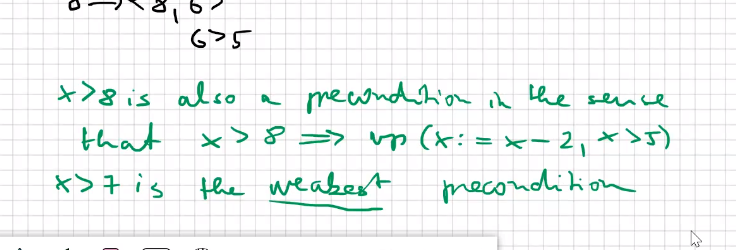 6>5
x>8 is also a precondition in the sense
that x > 8 ⟹ wp (x:= x-2, x>5)
x>7 is the weakest precondition